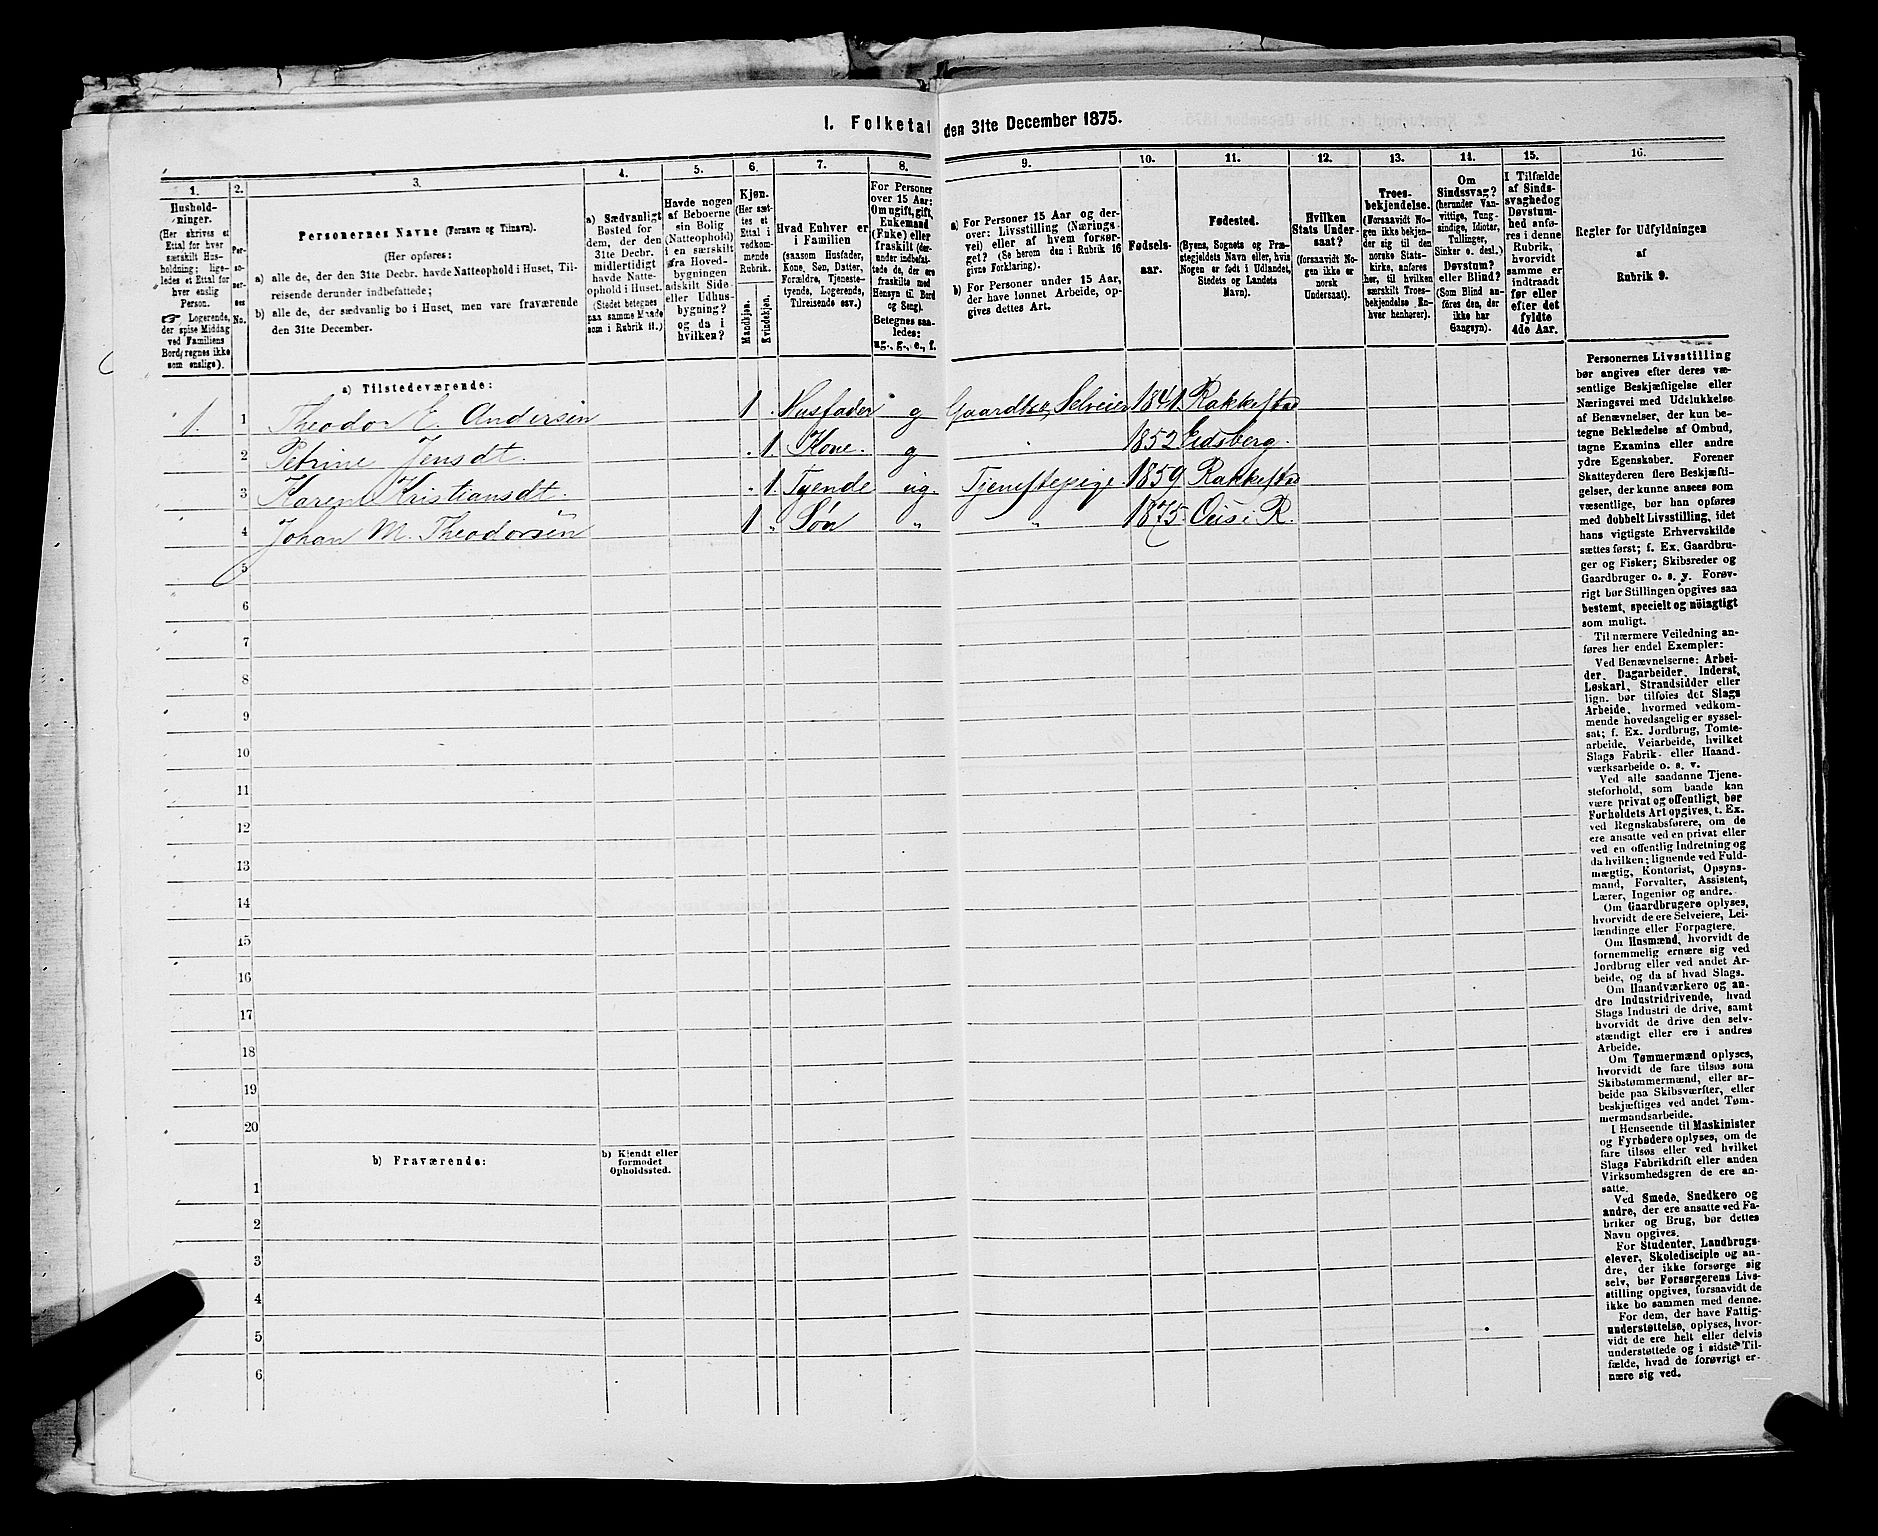 I. Folketal den 31te December 1875.
1.
2.
3.
4.
5.
6.
7.
8.
9.
10.
11.
12.
13.
14.
15.
16.
Hushold-
ninger.
(Her skrives et
Ettal for hver
særskilt Hus-
holdning; lige-
ledes et Ettal for
hver enslig
Person.
☞ Logerende,
der spise Middag
ved Familiens
Bord, regnes ikke
som enslige).
Per-
so-
ner-
nes
No.
Personernes Navne (Fornavn og Tilnavn).
(Her opføres:
a) alle de, der den 31te Decbr. havde Natteophold i Huset, Til-
reisende derunder indbefattede;
b) alle de, der sædvanlig bo i Huset, men vare fraværende
den 31te December.
a) Sædvanligt
Bosted for
dem, der den
31te Decbr.
midlertidigt
havde Natte-
ophold i Huset.
(Stedet betegnes
paa samme Maade
som i Rubrik 11.)
Havde nogen
af Beboerne
sin Bolig
(Natteophold)
i en særskilt
fra Hoved-
bygningen
adskilt Side-
eller Udhus-
bygning?
og da i
hvilken?
Kjøn.
(Her sæt-
tes et
Ettal i
vedkom-
mende
Rubrik.
Mandkjøn.
Kvindekjøn.
Hvad Enhver er
i Familien
(saasom Husfader,
Kone, Søn, Datter,
Forældre, Tjeneste-
tyende, Logerende,
Tilreisende osv.)
For Personer
over 15 Aar:
Om ugift, gift,
Enkemand
(Enke) eller
fraskilt (der-
under indbefat-
tede de, der ere
fraskilte med
Hensyn til Bord
og Seng).
Betegnes saa-
ledes:
ug., g., e., f.
a) For Personer 15 Aar og der-
over: Livsstilling (Nærings-
vei) eller af hvem forsør-
get? (Se herom den i Rubrik 16
givne Forklaring).
b) For Personer under 15 Aar,
der have lønnet Arbeide, op-
gives dettes Art.
Fødsels-
aar.
Fødested.
(Byens, Sognets og Præ-
stegjeldets Navn eller, hvis
Nogen er født i Udlandet,
Stedets og Landets
Navn).
Hvilken
Stats Under-
saat?
(forsaavidt No-
gen ikke er
norsk
Undersaat).
Troes-
bekjendelse.
(Forsaavidt No-
gen ikke bekjen-
der sig til den
norske Stats-
kirke, anføres
her, til hvilken
særskilt Troes-
bekjendelse En-
hver henhører).
Om
Sindssvag?
(herunder Van-
vittige, Tung-
sindige, Idioter,
Tullinger,
Sinker o. desl.)
Døvstum?
eller Blind?
(Som Blind an-
føres den, der
ikke har
Gangsyn).
I Tilfælde
af Sinds-
svaghed og
Døvstum-
hed anfø-
res i denne
Rubrik,
hvorvidt
samme er
indtraadt
før eller
efter det
fyldte
4de Aar.
Regler for Udfyldningen
af
Rubrik 9.
a) Tilstedeværende:
1. 1 Theodor E. Andersen 1 Husfader g Gaardbr, Selveier 1841 Rakkestad
2 Petrine Jensdt. 1 Kone g 1852 Eidsberg.
3 Karen Kristiansdt. 1 Tyende ug. Tjenestepige 1859 Rakkestad
4 Johan M. Theodorsen 1 „ Søn „ „ 1875 R.
5
6
7
8
9
10
11
12
13
14
15
16
17
18
19
20
b) Fraværende:
b) Kjendt eller
formodet
Opholdssted.
1
2
3
4
5
6
Personernes Livsstilling
bør angives efter deres væ-
sentlige Beskjæftigelse eller
Næringsvei med Udelukkelse
af Benævnelser, der kun be-
tegne Beklædelse af Ombud,
tagne Examina eller andre
ydre Egenskaber. Forener
Skatteyderen flere Beskjæfti-
gelser, der kunne ansees som
væsentlige, bør han opføres
med dobbelt Livsstilling, idet
hans vigtigste Erhvervskilde
sættes først; f. Ex. Gaardbru-
ger og Fisker; Skibsreder og
Gaardbruger o. s. v. Forøv-
rigt bør Stillingen opgives saa
bestemt, specielt og nöiagtigt
som muligt.
Til nærmere Veiledning an-
føres her endel Exempler:
Ved Benævnelserne: Arbei-
der, Dagarbeider, Inderst,
Løskarl, Strandsidder eller
lign. bør tilføies det Slags
Arbeide, hvormed vedkom-
mende hovedsagelig er syssel-
sat; f. Ex. Jordbrug, Tomte-
arbeide, Veiarbeide, hvilket
Slags Fabrik- eller Haand-
værksarbeide o. s. v.
Ved alle saadanne Tjene-
steforhold, som baade kan
være privat og offentligt, bør
Forholdets Art opgives, t. Ex.
ved Regnskabsførere, om de
ere ansatte ved en privat eller
ved en offentlig Indretning og
da hvilken; lignende ved Fuld-
mægtig, Kontorist, Opsyns-
mand, Forvalter, Assistent,
Lærer, Ingeniør og andre.
Om Gaardbrugere oplyses,
hvorvidt de ere Selveiere, Lei-
lændinge eller Forpagtere.
Om Husmænd, hvorvidt de
fornemmelig ernære sig ved
Jordbrug eller ved andet Ar-
beide, og da af hvad Slags.
Om Haandværkere og an-
dre Industridrivende, hvad
Slags Industri de drive, samt
hvorvidt de drive den selv-
stændigt eller ere i andres
Arbeide.
Om Tømmermænd oplyses,
hvorvidt de fare tilsøs som
Skibstømmermænd, eller ar-
beide paa Skibsværfter, eller
beskjæftiges ved andet Tøm-
mermandsarbeide.
I Henseende til Maskinister
og Fyrbødere oplyses, om de
fare tilsøs eller ved hvilket
Slags Fabrikdrift eller anden
Virksomhedsgren de ere an-
satte.
Ved Smede, Snedkere og
andre, der ere ansatte ved Fa-
briker og Brug, bør dettes
Navn opgives.
For Studenter, Landbrugs-
elever, Skoledisciple og an-
dre, der ikke forsørge sig
selv, bør Forsørgerens Livs-
stilling opgives, forsaavidt de
ikke bo sammen med denne.
For dem, der have Fattig-
understøttelse, oplyses, hvor-
vidt de ere helt eller delvis
understøttede og i sidste Til-
fælde, hvad de forøvrigt er-
nære sig ved.